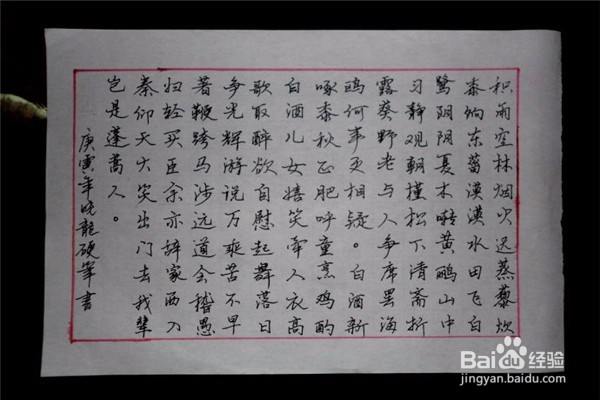 积雨空林烟火迟蒸藜炊
黍饷东菑漠漠水田飞白
鹭阴阴夏木啭黄鹂山中
习静观朝槿松下清斋折
露葵野老与人争席罢海
鸥何事更相疑。白酒新
啄黍秋正肥呼童烹鸡酌
白酒儿女嬉笑牵人衣高
歌取醉欲自慰起舞落日
争光辉游说万乘苦不早
著鞭跨马涉远道会稽愚
妇轻买臣余亦辞家西入
秦仰天大笑出门去我辈
岂是蓬蒿人。
庚寅年晓龍硬筆書
Baidu经验
jingyan.baidu.com